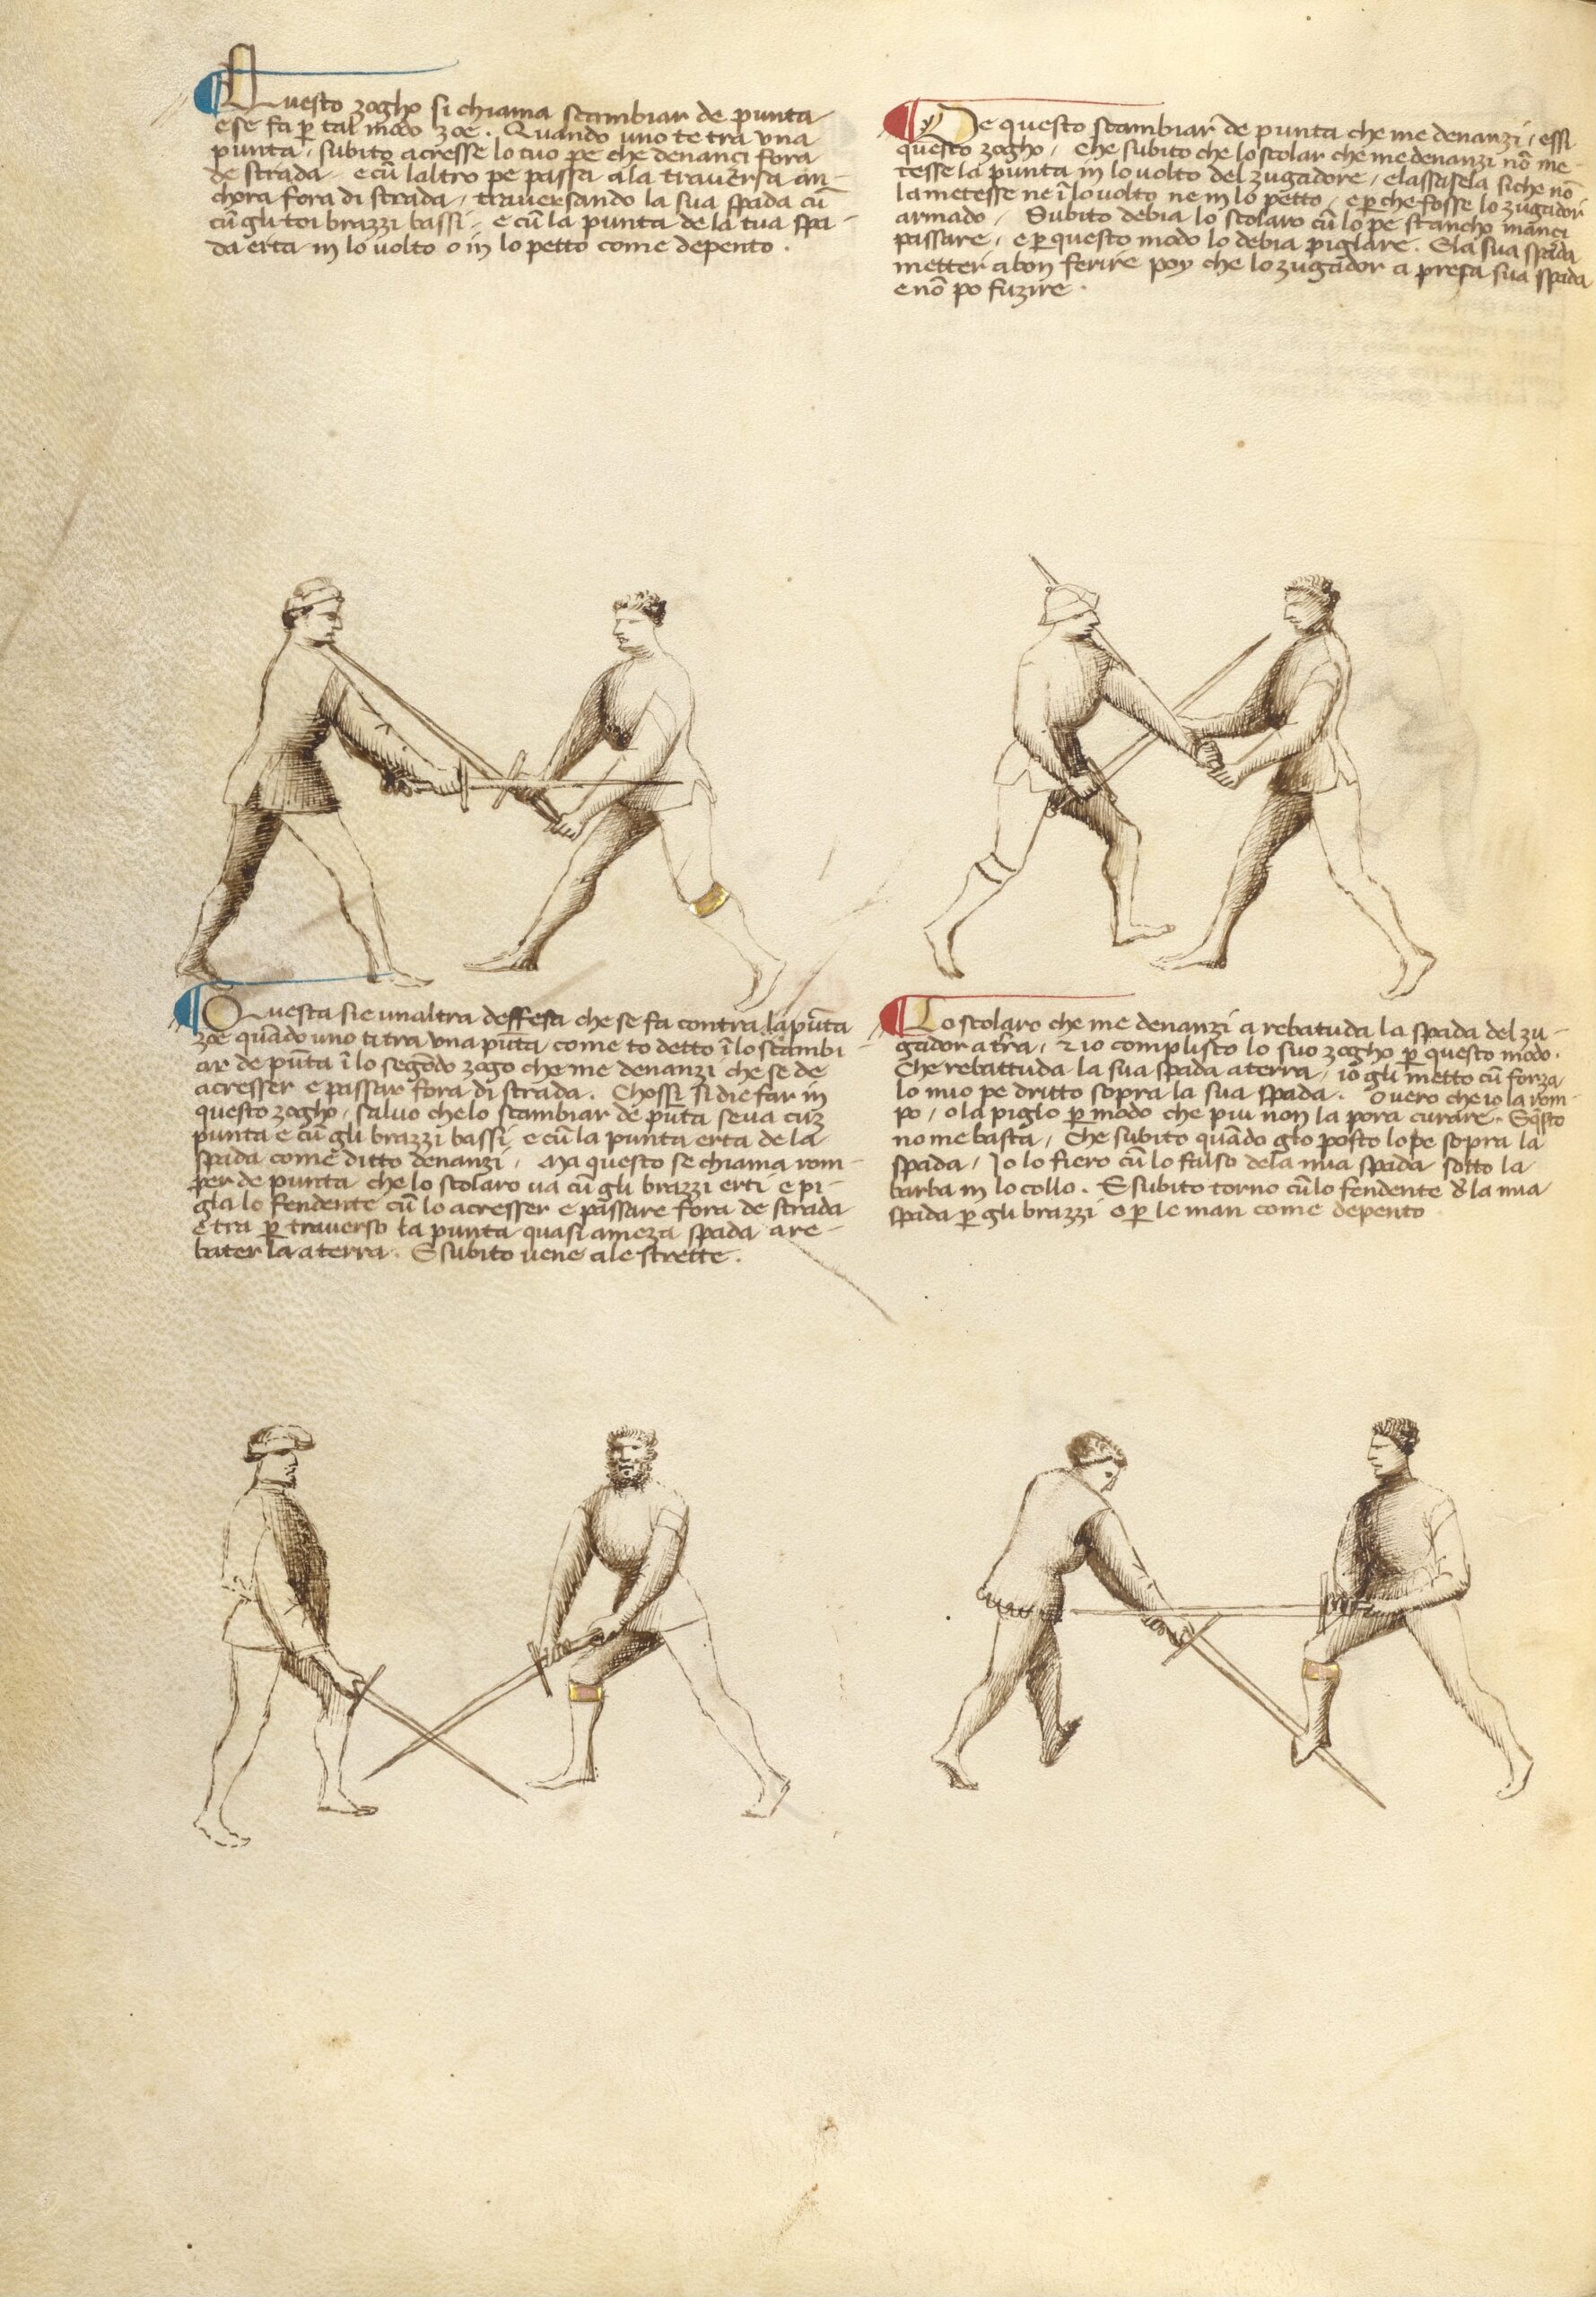 Questo zogho si chiama scambiar de punta
e se fa p̱ tal modo zoe . Quando uno te tra una
punta, subito acresse lo tuo pe che denanci fora
de strada e cū laltro pe passa ala traversa an-
chora fora di strada, traversando la sua spada cū
cū gli toi brazzi bassi, e cū la punta de la tua spa-
da erta in lo volto o in lo petto come depento .
De questo scambiar de punta che me denanzi, essi
questo zogho, che subito che lo scolar che me denanzi nō me-
tesse la punta in lo volto del zugadore, e lassasela siche nō
la metesse ne ī lo volto ne in lo petto, e p̱ che fosse lo zugador
armado, Subito debia lo scolaro cū lo pe stancho inanci
passare, e p̱ questo modo lo debia piglare. E la sua spada
metter a bon ferire poy che lo zugador a presa sua spada
e nō po fuzire .
Questa sie unaltra deffesa che se fa contra la pūta
zoe quādo uno ti tra una pūta come to detto ī lo scambi-
ar de pūta ī lo segōdo zogo che me denanzi che se de
acresser e passar fora di strada . Chossi si die far in
questo zogho, salvo che lo scambiar de pūta se va cuz
punta e cū gli brazzi bassi e cū la punta erta de la
spada come ditto denanzi, Ma questo se chiama rom-
per de punta che lo scolaro va cū gli brazzi erti e pi-
gla lo fendente cū lo acresser e passare fora de strada
e tra p̱ traverso la punta quasi a meza spada a re-
bater la a terra. E subito vene ale strette .
Lo scolaro che me denanzi a rebatuda la spada del zu-
gador a tra, & io complisco lo suo zogho p̱ questo modo.
Che rebattuda la sua spada a terra, io gli metto cū forza
lo mio pe dritto sopra la sua spada . Overo che io la rom-
po, o la piglo p̱ modo che piu non la pora curare. E q̄sto
no me basta, Che subito quādo glo posto lo pe sopra la
spada, Io lo fiero cū lo falso de la mia spada sotto la
barba in lo collo . E subito torno cū lo fendente d̄ la mia
spada p̱ gli brazzi o p̱ le man come depento .